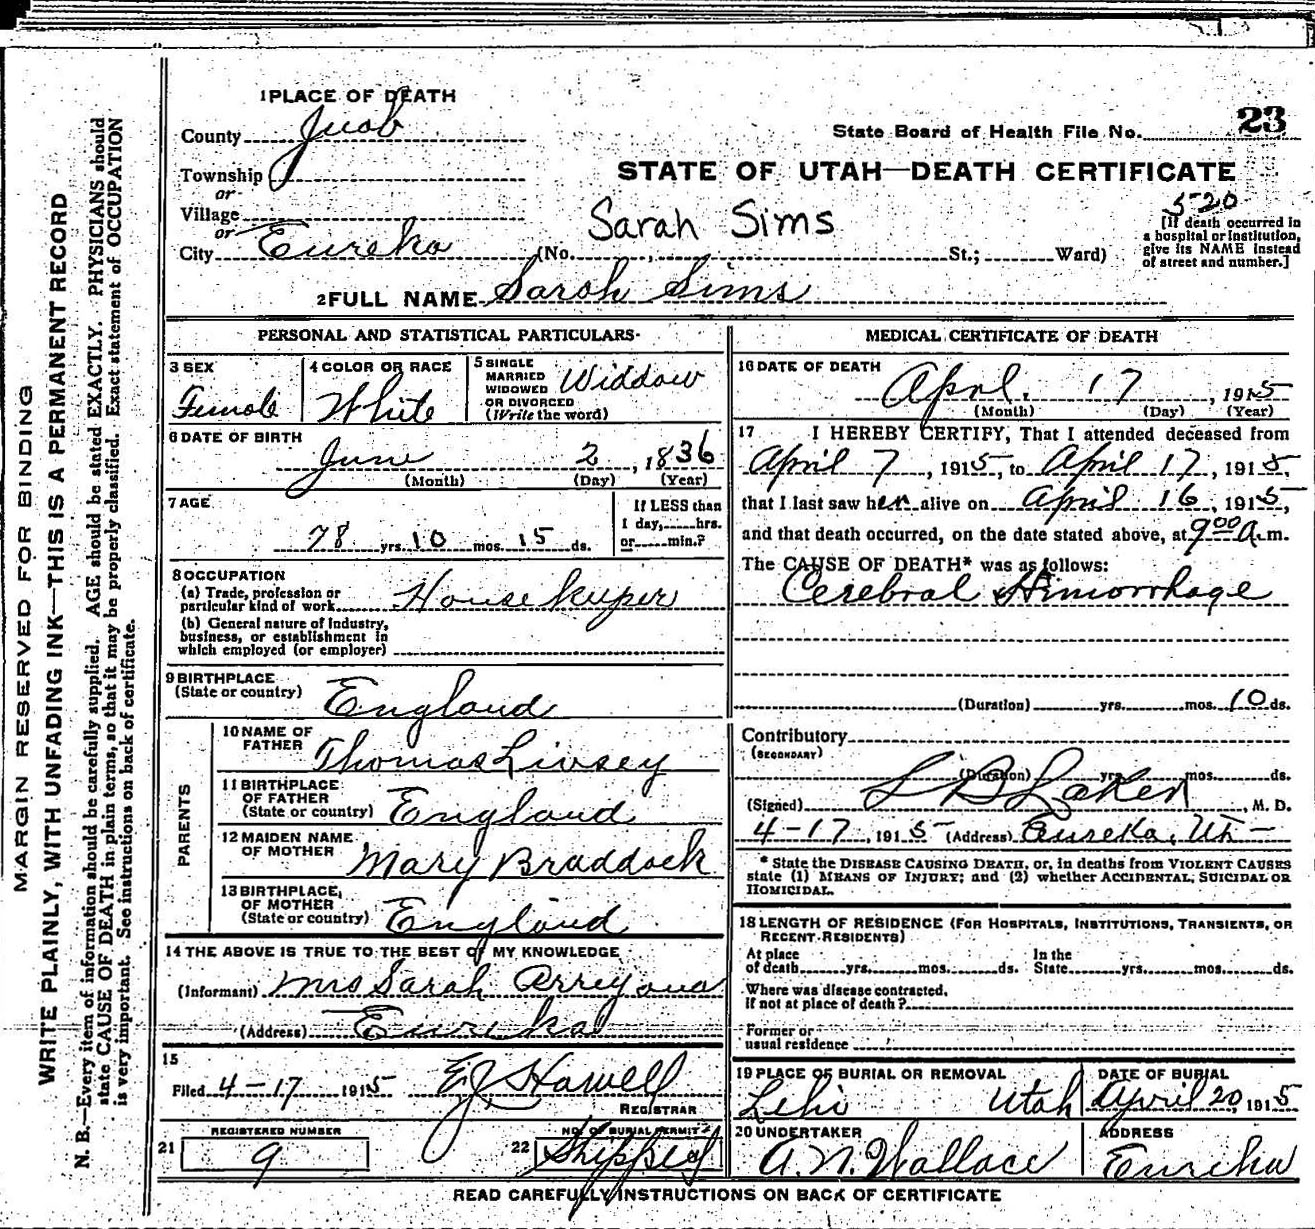 1 PLACE OF DEATH
County Juab
State Board of Health File No. 23
Township
or
Village
or
City Eureka (No. St.; Ward)
STATE OF UTAH—DEATH CERTIFICATE
520
Sarah Sims
[If death occurred in
a hospital or institution,
give its NAME instead
of street and number.]
2 FULL NAME Sarah Sims
PERSONAL AND STATISTICAL PARTICULARS
3 SEX
Female
4 COLOR OR RACE
White
5 SINGLE
MARRIED
WIDOWED
OR DIVORCED
(Write the word)
Widdow
6 DATE OF BIRTH
June 2, 1836
(Month) (Day) (Year)
7 AGE
78 yrs. 10 mos. 15 ds.
If LESS than
1 day, hrs.
or min.?
8 OCCUPATION
(a) Trade, profession or
particular kind of work Housekeeper
(b) General nature of industry,
business, or establishment in
which employed (or employer)
9 BIRTHPLACE
(State or country) England
PARENTS
10 NAME OF
FATHER Thomas Livsey
11 BIRTHPLACE
OF FATHER
(State or country) England
12 MAIDEN NAME
OF MOTHER Mary Braddock
13 BIRTHPLACE,
OF MOTHER
(State or country) England
14 THE ABOVE IS TRUE TO THE BEST OF MY KNOWLEDGE
(Informant) Mrs Sarah
(Address) Eureka
15
Filed 4-17 1915 E.J. Howell
REGISTRAR
REGISTERED NUMBER
21 9
NO. OF BURIAL PERMIT
22 Shipped
MEDICAL CERTIFICATE OF DEATH
16 DATE OF DEATH
April. 17, 1915
(Month) (Day) (Year)
17 I HEREBY CERTIFY, That I attended deceased from
April 7, 1915, to April 17, 1915,
that I last saw her alive on April 16, 1915,
and that death occurred, on the date stated above, at 9:00 A.m.
The CAUSE OF DEATH* was as follows:
Cerebral Hemorrhage
(Duration) yrs. mos. 10 ds.
Contributory
(SECONDARY)
(Duration) yrs. mos. ds.
(Signed) L B Laker, M. D.
4-17, 1915 (Address) Eureka, Ut-
* State the DISEASE CAUSING DEATH, or, in deaths from VIOLENT CAUSES
state (1) MEANS OF INJURY; and (2) whether ACCIDENTAL, SUICIDAL OR
HOMICIDAL.
18 LENGTH OF RESIDENCE (FOR HOSPITALS, INSTITUTIONS, TRANSIENTS, OR
RECENT RESIDENTS)
At place
of death yrs. mos. ds.
In the
State yrs. mos. ds.
Where was disease contracted,
if not at place of death?
Former or
usual residence
19 PLACE OF BURIAL OR REMOVAL
Lehi Utah
DATE OF BURIAL
April 20, 1915
20 UNDERTAKER
A. N. Wallace
ADDRESS
Eureka
READ CAREFULLY INSTRUCTIONS ON BACK OF CERTIFICATE
MARGIN RESERVED FOR BINDING
WRITE PLAINLY, WITH UNFADING INK—THIS IS A PERMANENT RECORD
N. B.—Every item of information should be carefully supplied. AGE should be stated EXACTLY. PHYSICIANS should
state CAUSE OF DEATH in plain terms, so that it may be properly classified. Exact statement of OCCUPATION
is very important. See instructions on back of certificate.